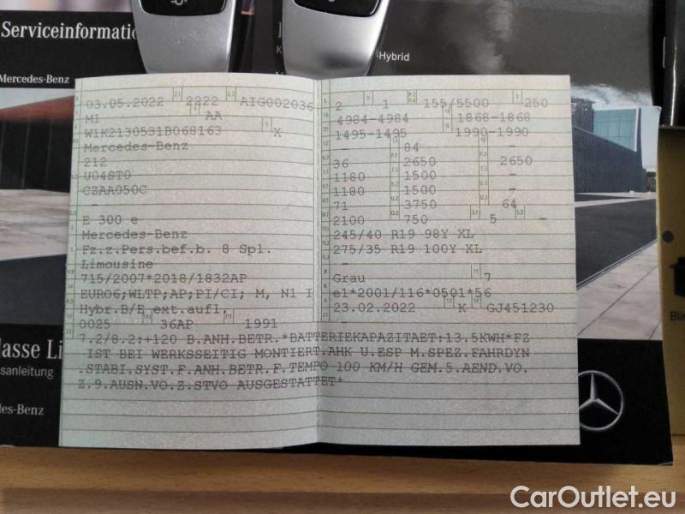 Serviceinformatio
Mercedes-Benz
Hybrid
03.05.2022 2222 AIG002036
MI AA
W1K2130531B068163 X
Mercedes-Benz
212
U04ST0
CZAA050C
E 300 e
Mercedes-Benz
Fz.z.Pers.bef.b. 8 Spl.
Limousine
715/2007*2018/1832AP
EURO6;WLTP;AP;PI/CI; M, N1 I
Hybr.B/E ext.aufl.
0025 36AP 1991
2 1 155/5500 250
4984-4984 1868-1868
1495-1495 1990-1990
- 84 -
36 2650 2650
1180 1500 -
1180 1500 -
71 3750 64
2100 750 5 -
245/40 R19 98Y XL
275/35 R19 100Y XL
-
Grau 7
e1*2001/116*0501*56
23.02.2022 K GJ451230
7.2/8.2:+120 B.ANH.BETR.*BATTERIEKAPAZITAET:13.5KWH*FZ
IST BEI WERKSSEITIG MONTIERT.AHK U.ESP M.SPEZ.FAHRDYN
.STABI.SYST.F.ANH.BETR.F.TEMPO 100 KM/H GEM.5.AEND.VO.
Z.9.AUSN.VO.Z.STVO AUSGESTATTET*
lasse Li
sanleitung
des-Benz
CarOutlet.eu